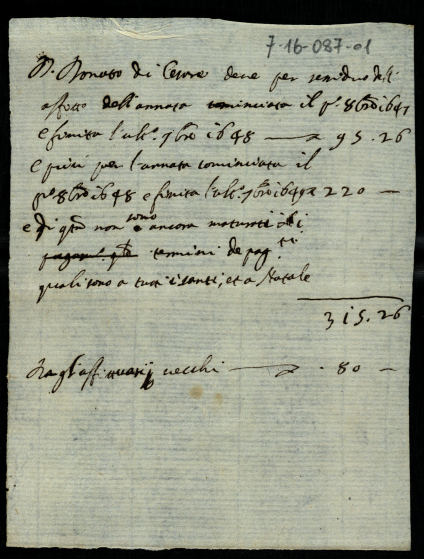 7-16-087-01
Donato di Cesare deve per residuo dell'
affitto dell'annata cominciata il p.º 8bre 1647
e finita l'ult.º 7bre 1648 95.26
e più per l'annata cominciata il
p.º 8bre 1648 e finita l'ult.º 7bre 1649 220 —
e di q.ta non sono ancora maturati li
termini de pag.ti
quali sono a tutti i santi, et a Natale
315.26
vecchi 80 —